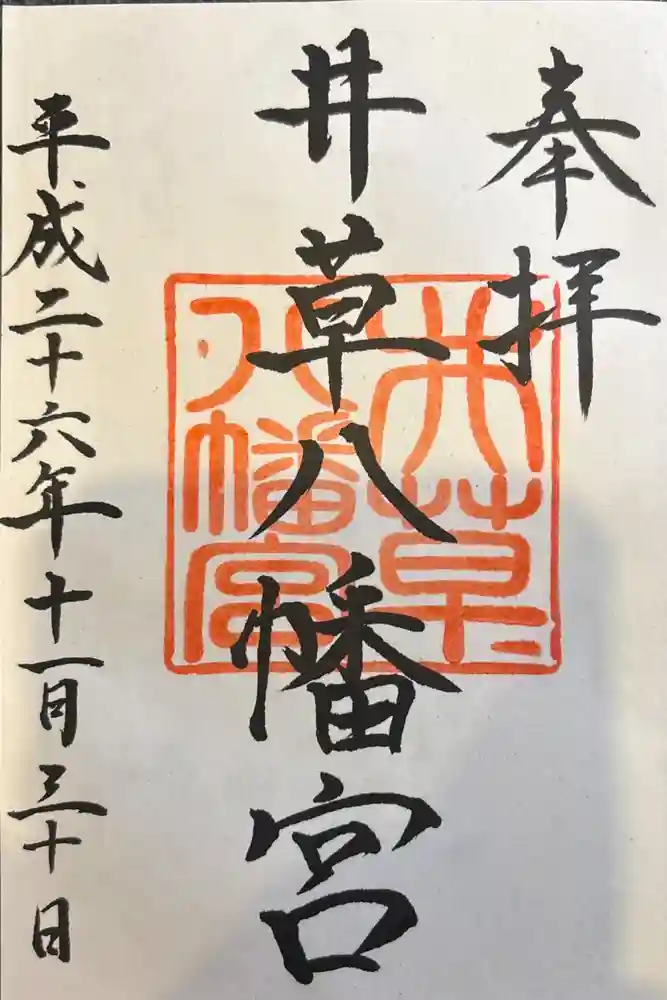 奉拝
井草八幡宮
井草
八幡宮
平成二十六年十一月三十日